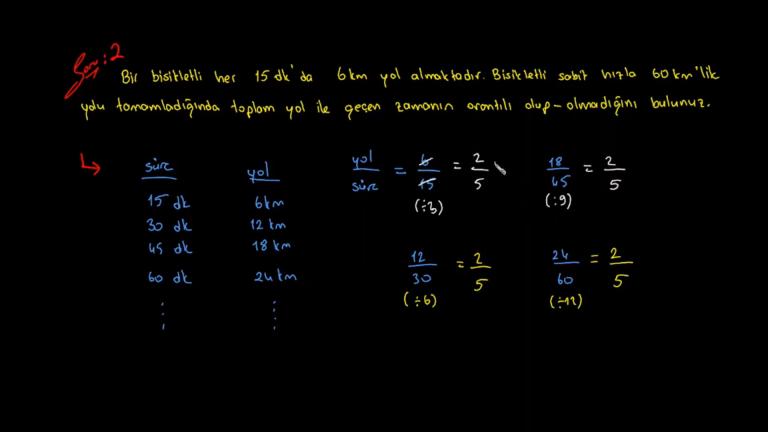 Soru: 2
Bir bisikletli her 15 dk'da 6 km yol almaktadır. Bisikletli sabit hızla 60 km'lik
yolu tamamladığında toplam yol ile geçen zamanın orantılı olup-olmadığını bulunuz.
süre yol
15 dk 6 km
30 dk 12 km
45 dk 18 km
60 dk 24 km
yol/süre = 6/15 = 2/5
(÷3)
18/45 = 2/5
(÷9)
12/30 = 2/5
(÷6)
24/60 = 2/5
(÷12)